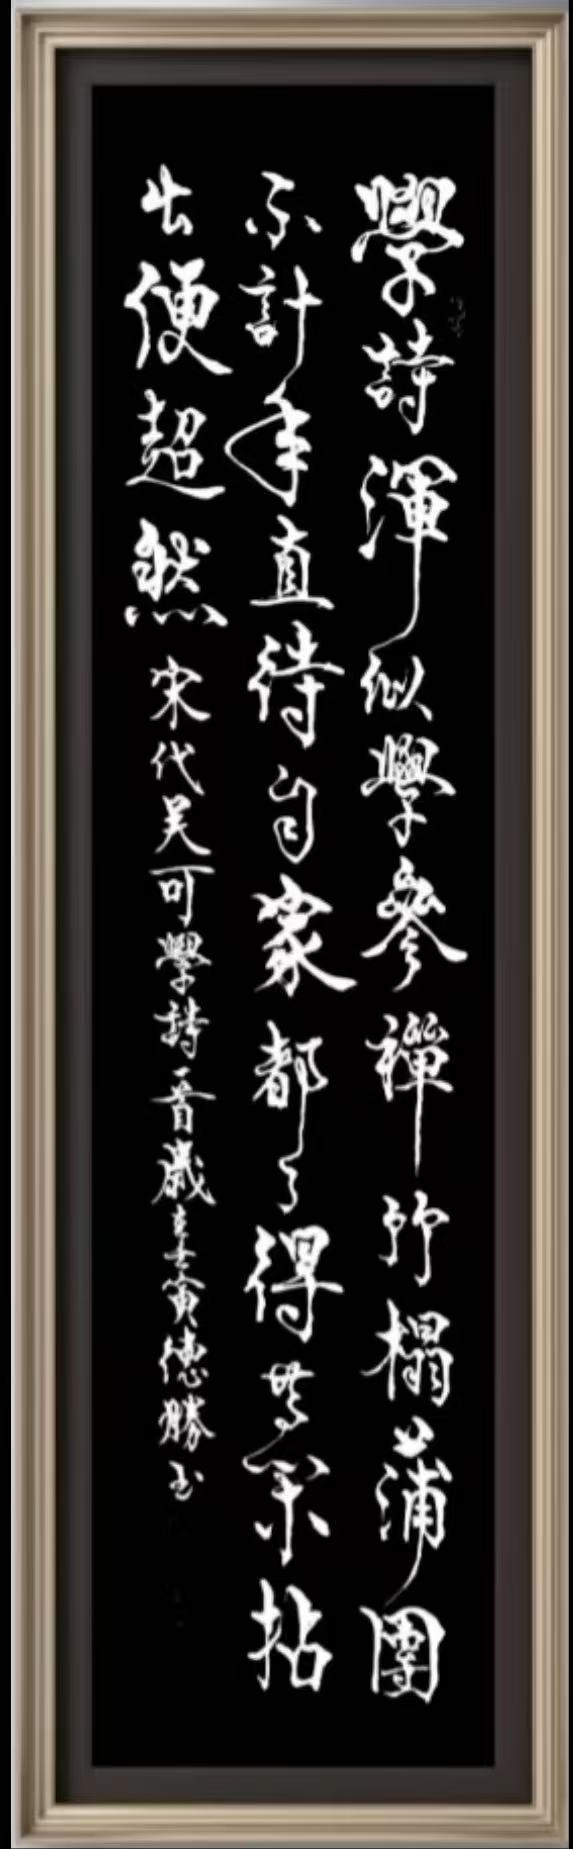 學詩渾似學參禪竹榻蒲團
不計年直待自家都了得等閑拈
出便超然 宋代吴可學詩一首歲在壬寅德勝书